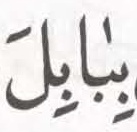 بِبٰابِلَ